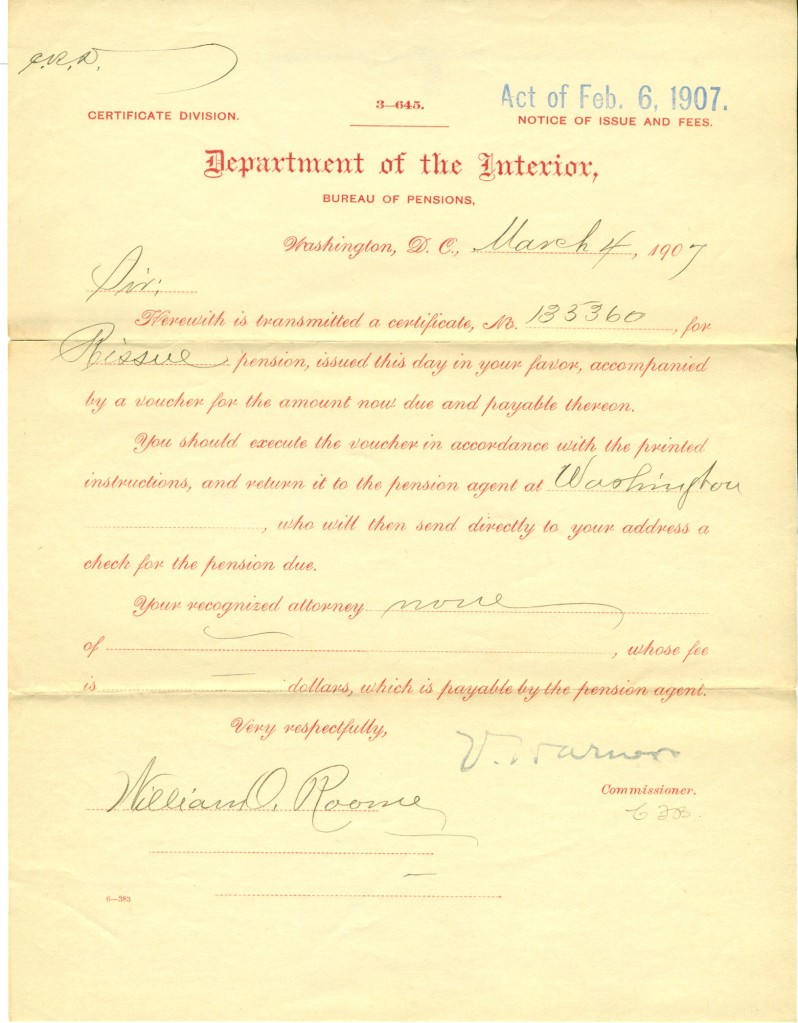 CERTIFICATE DIVISION.
3—645.
Act of Feb. 6, 1907.
NOTICE OF ISSUE AND FEES.
Department of the Interior,
BUREAU OF PENSIONS,
Washington, D. C., March 4, 1907
Sir:
Herewith is transmitted a certificate, No. 135360, for
Reissue pension, issued this day in your favor, accompanied
by a voucher for the amount now due and payable thereon.
You should execute the voucher in accordance with the printed
instructions, and return it to the pension agent at Washington
, who will then send directly to your address a
check for the pension due.
Your recognized attorney none
of , whose fee
is — dollars, which is payable by the pension agent.
Very respectfully,
V. Warner
Commissioner.
William O. Roome
6—383